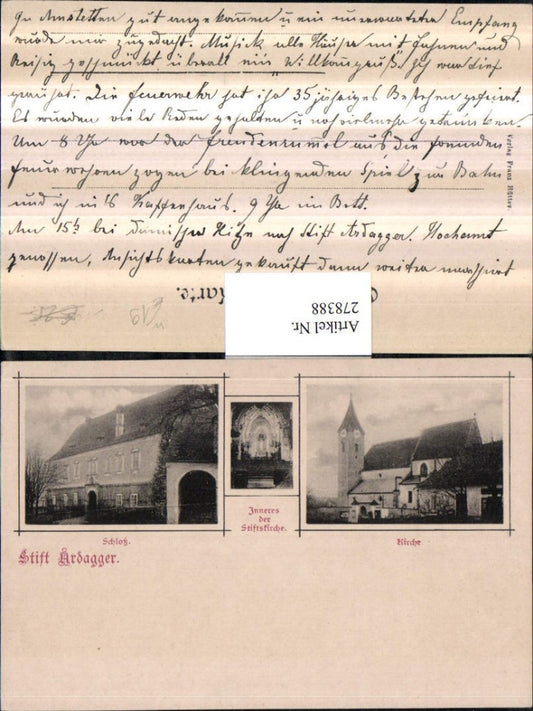 In Amstetten gut angekommen u ein unerwarteter Empfang
wurde mir zugedacht. Musick alle Häuser mit Fahnen und
Reisig geschmückt überall ein "Willkomgruß. Ich war tief
gerührt. Die Feuerwehr hat ihr 35 jähriges Bestehen gefeiert.
Es wurden viele Reden gehalten u noch vielmehr getrunken.
Um 8 Uhr war der Freudenrummel aus die fremden
Feuerwehren zogen bei klingenden Spiel zum Bahn
und ich in's Kaffeehaus. 9 Uhr im Bett.
Am 15t bei Hitze nach Stift Ardagger. Hochamt
genossen, Ansichtskarten gekauft dann weiter marschiert
Verlag Franz Hütter.
Karte.
Artikel Nr.
278388
Schloß.
Inneres
der
Stiftskirche.
Kirche
Stift Ardagger.